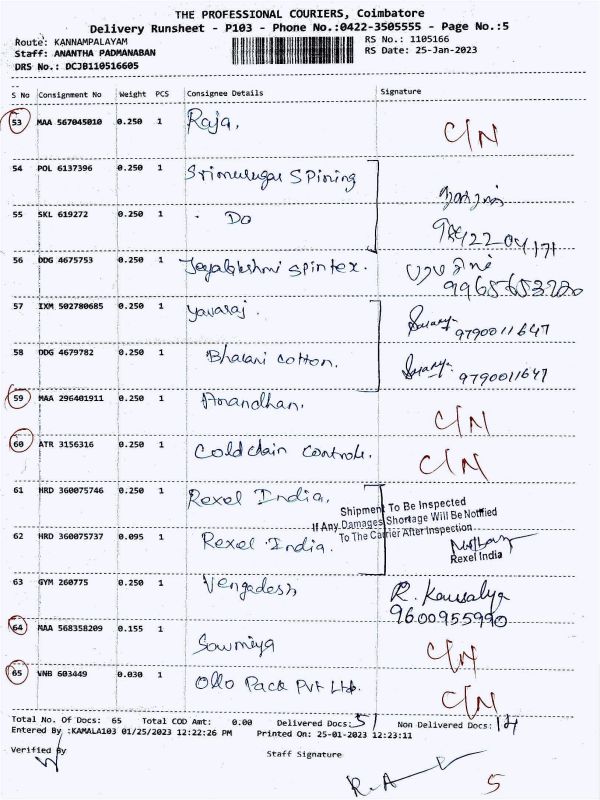 THE PROFESSIONAL COURIERS, Coimbatore
Delivery Runsheet - P103 - Phone No.:0422-3505555 - Page No.:5
Route: KANNAMPALAYAM RS No.: 1105166
Staff: ANANTHA PADMANABAN RS Date: 25-Jan-2023
DRS No.: DCJB110516605
S No Consignment No Weight PCS Consignee Details Signature
53 MAA 567045010 0.250 1 Raja, C/N
54 POL 6137396 0.250 1 Srimurugar Spining
55 SKL 619272 0.250 1 Do
56 DDG 4675753 0.250 1 Jeyalakshmi spintex.
57 IXM 502780685 0.250 1 yavaraj. 9790011647
58 DDG 4679782 0.250 1 Bharani cotton. 9790011647
59 MAA 296401911 0.250 1 Anandhan. C/N
60 ATR 3156316 0.250 1 Cold chain Controls. C/N
61 HRD 360075746 0.250 1 Rexel India.
Shipment To Be Inspected
If Any Damages Shortage Will Be Notified
To The Carrier After Inspection
62 HRD 360075737 0.095 1 Rexel India.
Rexel India
63 GYM 260775 0.250 1 Vengadesh R. Kausalya
9600955990
64 MAA 568358209 0.155 1 Sowmiya C/N
65 VNB 603449 0.030 1 Ollo Pack Pvt Ltd. C/N
Total No. Of Docs: 65 Total COD Amt: 0.00 Delivered Docs: 51 Non Delivered Docs: 14
Entered By :KAMALA103 01/25/2023 12:22:26 PM Printed On: 25-01-2023 12:23:11
Verified By Staff Signature
R.A
5